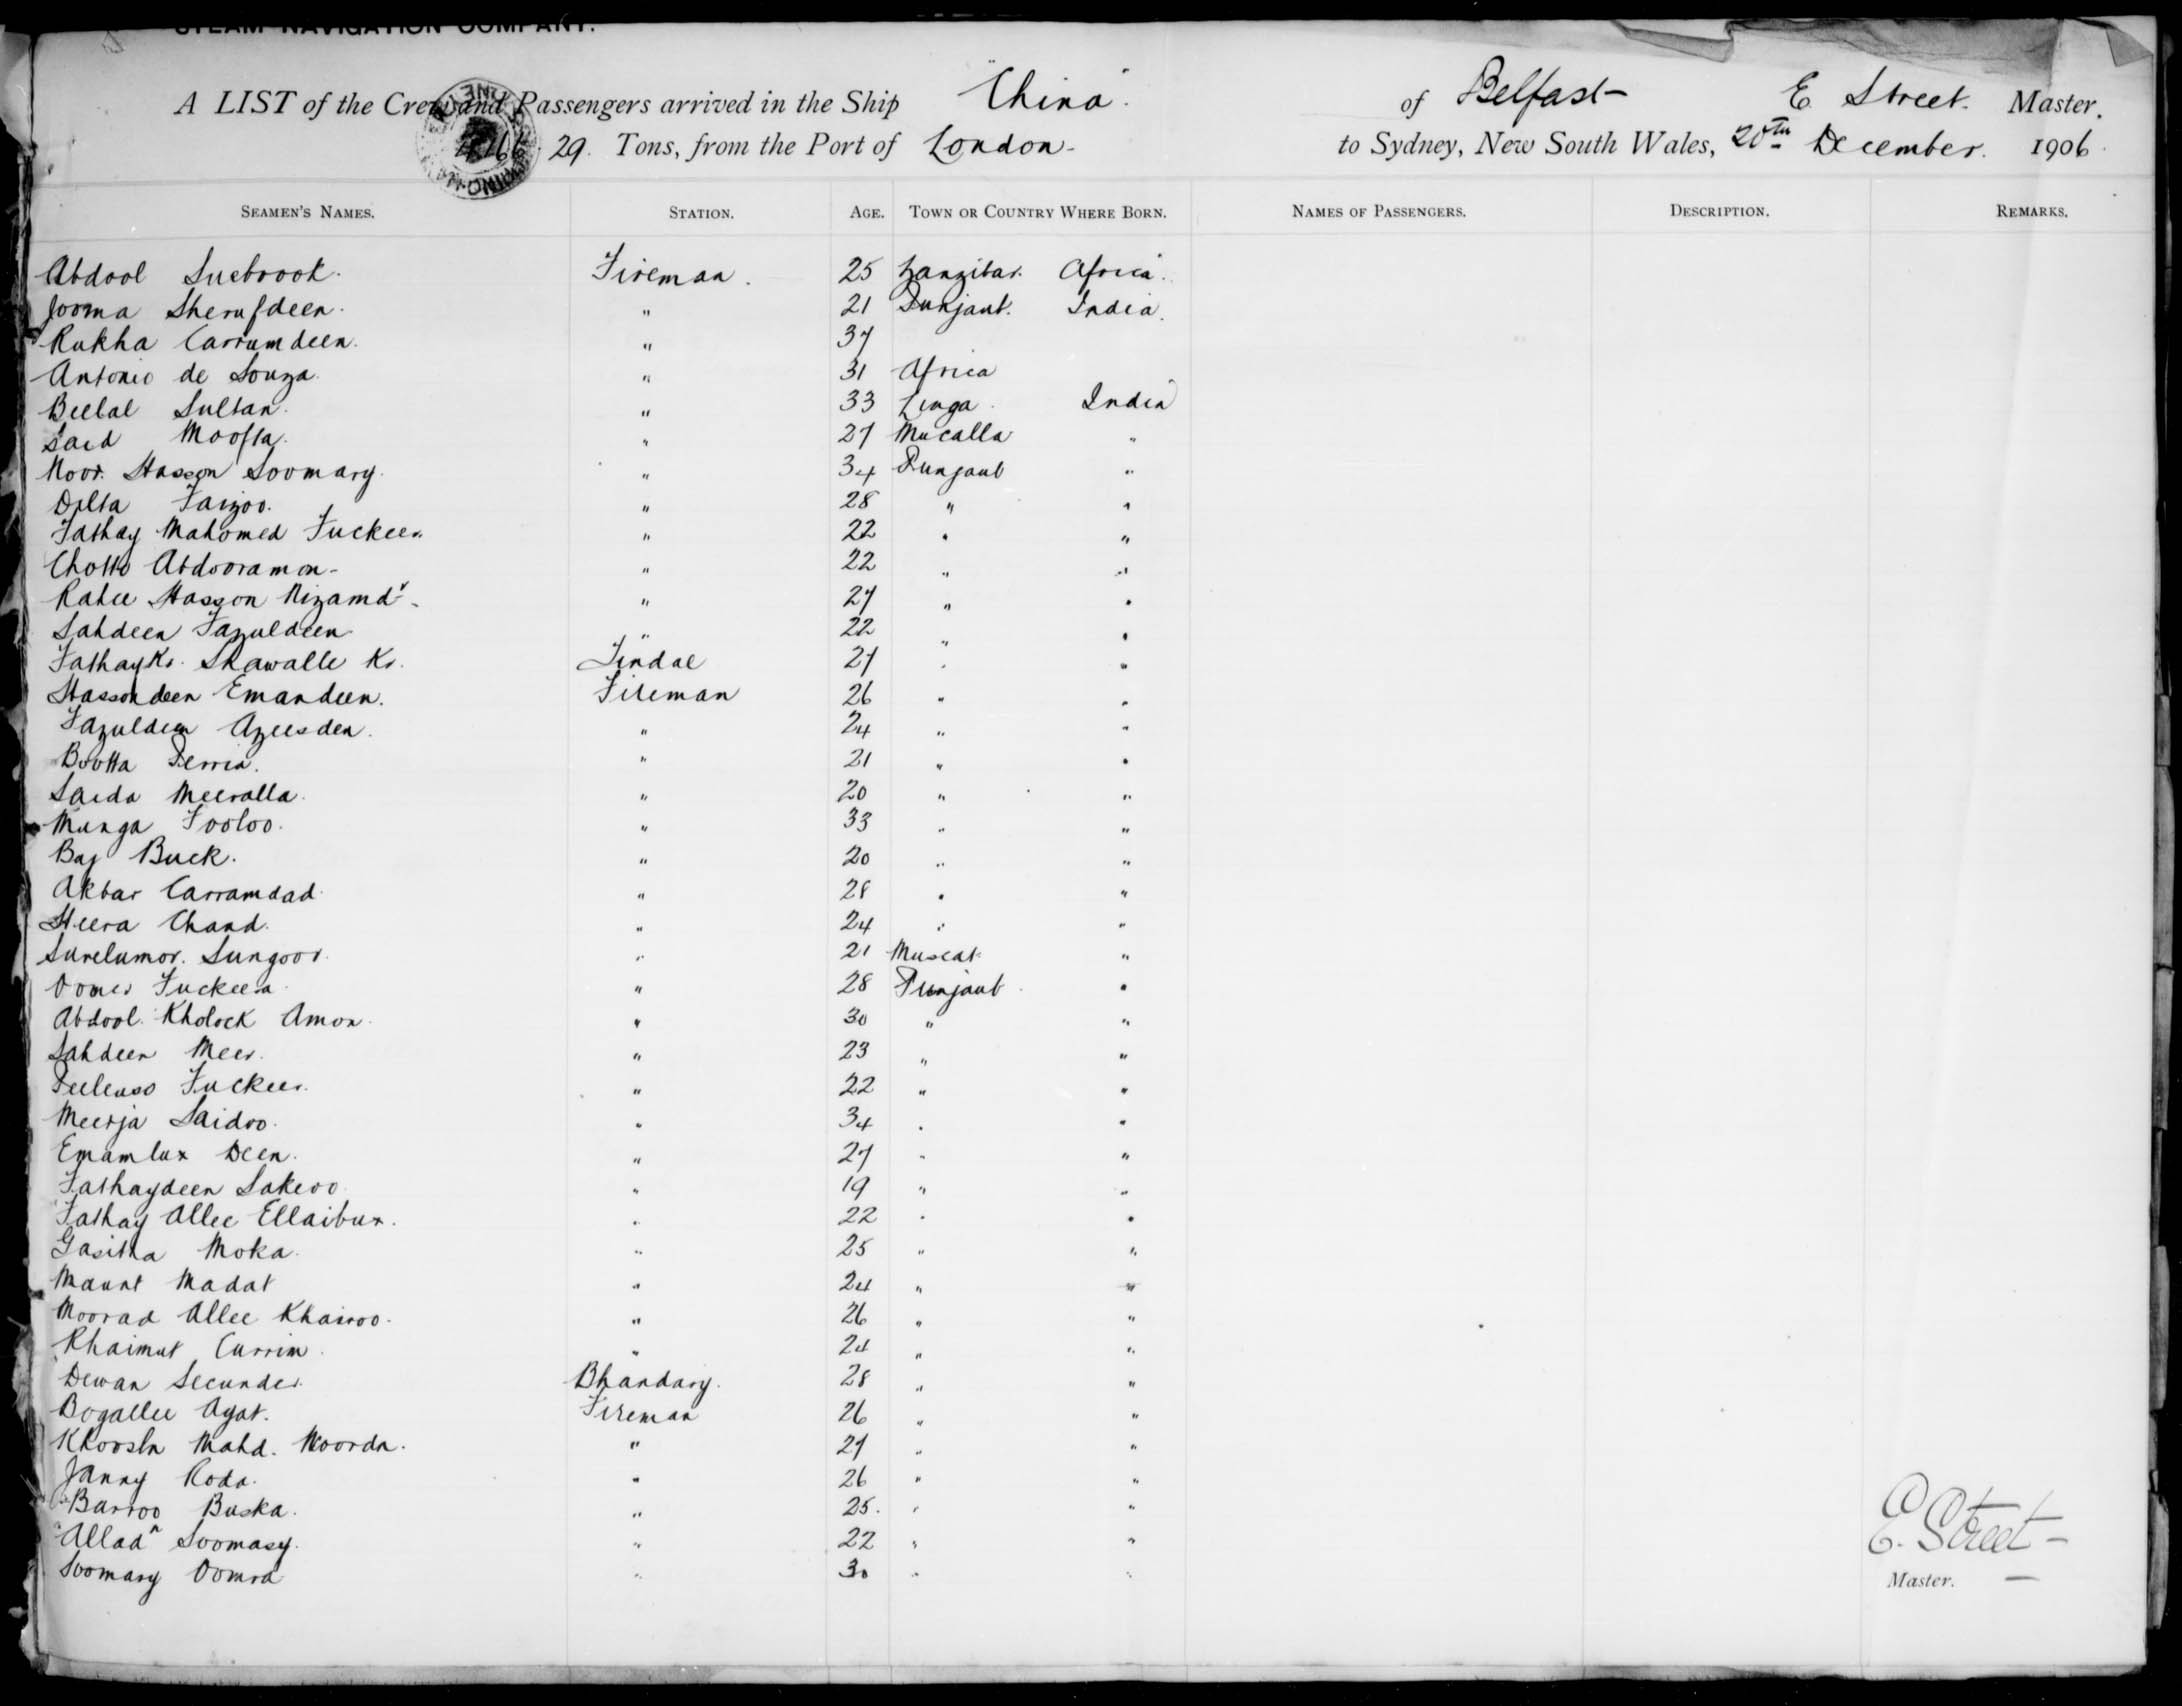 STEAM NAVIGATION COMPANY.
A LIST of the Crew and Passengers arrived in the Ship "China". of Belfast E Street. Master.
29. Tons, from the Port of London - to Sydney, New South Wales, 20th December. 1906.
SEAMEN'S NAMES. STATION. AGE. TOWN OR COUNTRY WHERE BORN. NAMES OF PASSENGERS. DESCRIPTION. REMARKS.
Abdool Fireman. 25 Zanzibar. Africa.
Jooma Sherufdeen. " 21 Punjaut. India.
Rukha Carrumdeen. " 37
Antonio de Souza. " 31 Africa
Beelal Sultan. " 33 Linga. India
Said Moofta. " 27 Mucalla "
Noor. Hasson Soomary. " 34 Punjaub "
Ditta Faizoo. " 28 " "
Fathay Mahomed Fuckeer. " 22 " "
Chotto Abdooramon - " 22 " "
Hasson Nizamdn. " 27 " "
Sahdeen Fazuldeen " 22 " "
Fathay Kn. Shawalle Kn. Tindal 27 " "
Hassondeen Emandeen. Fireman 26 " "
Fazuldeen Azeesden. " 24 " "
Bootta Perria. " 21 " "
Saida Meeralla. " 20 " "
Munga Fooloo. " 33 " "
Baj Buck. " 20 " "
Akbar Carramdad. " 28 " "
Heera Chand. " 24 " "
Sungoor. " 21 Muscat. "
Oomer Fuckeera. " 28 Punjaub. "
Abdool. Kholock Amon. " 30 " "
Sahdeen Meer. " 23 " "
Fuckeer. " 22 " "
Meerja Saidoo. " 34 " "
Emambux Deen. " 27 " "
Fathaydeen Sakeoo. " 19 " "
Fathay Allee Ellaibux. " 22 " "
Gasitha Moka. " 25 " "
Maunt Madat " 24 " "
Moorad Allee Khairoo. " 26 " "
Rhaimut Currim. " 24 " "
Dewan Secunder. Bhandary. 28 " "
Bogallee Ayat. Fireman 26 " "
Mahd. Noorda. " 27 " "
Janny Roda. " 26 " "
Barroo Buska. " 25. " "
Alladn Soomary. " 22 " "
Soomary Oomra " 30 " "
E. Street -
Master. —